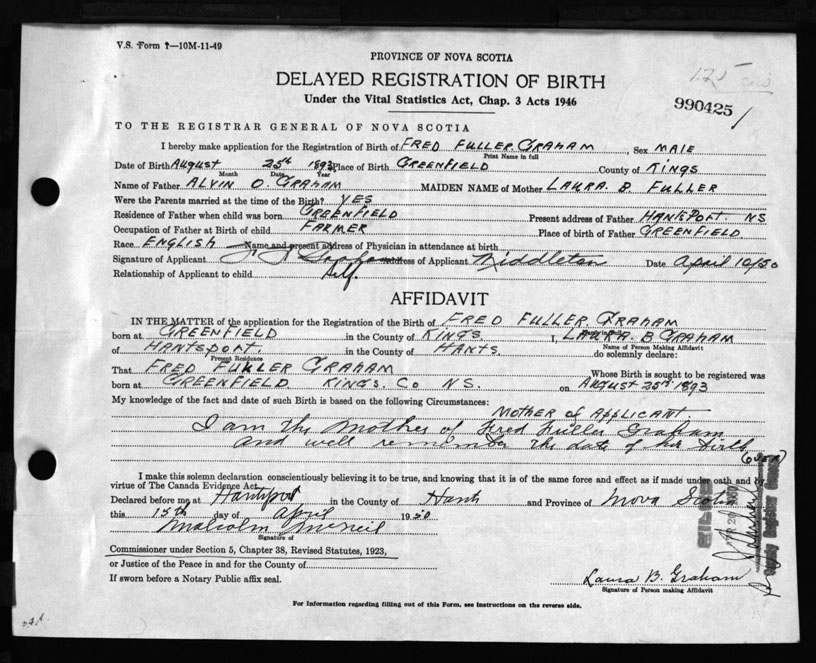 V.S. Form 1—10M-11-49
PROVINCE OF NOVA SCOTIA
DELAYED REGISTRATION OF BIRTH
Under the Vital Statistics Act, Chap. 3 Acts 1946
990425
TO THE REGISTRAR GENERAL OF NOVA SCOTIA
I hereby make application for the Registration of Birth of FRED FULLER GRAHAM, Sex MALE
Print Name in full
Date of Birth August 25th 1893 Place of Birth GREENFIELD County of KINGS
Month Date Year
Name of Father ALVIN O. GRAHAM MAIDEN NAME of Mother LAURA. B FULLER
Were the Parents married at the time of the Birth? YES
Residence of Father when child was born GREENFIELD Present address of Father HANTSPORT NS
Occupation of Father at Birth of child FARMER Place of birth of Father GREENFIELD
Race ENGLISH Name and present address of Physician in attendance at birth
Signature of Applicant F. F. Graham Address of Applicant Middleton Date April 10/50
Relationship of Applicant to child Self.
AFFIDAVIT
IN THE MATTER of the application for the Registration of the Birth of FRED FULLER GRAHAM
born at GREENFIELD in the County of KINGS. I, LAURA. B GRAHAM
Name of Person Making Affidavit
of HANTSPORT in the County of HANTS. do solemnly declare:
Present Residence
That FRED FULLER GRAHAM Whose Birth is sought to be registered was
born at GREENFIELD KINGS. Co NS. on AUGUST 25th 1893
My knowledge of the fact and date of such Birth is based on the following Circumstances:
MOTHER of APPLICANT.
I am the Mother of Fred Fuller Graham
and well remember the date of his birth
(OVER)
I make this solemn declaration conscientiously believing it to be true, and knowing that it is of the same force and effect as if made under oath and by
virtue of The Canada Evidence Act.
Declared before me at Hantsport in the County of Hants and Province of Nova Scotia
this 15th day of April 1950
Malcolm McNeil
Signature of
Commissioner under Section 5, Chapter 38, Revised Statutes, 1923,
or Justice of the Peace in and for the County of
If sworn before a Notary Public affix seal.
Laura B. Graham
Signature of Person making Affidavit
For Information regarding filling out of this Form, see instructions on the reverse side.